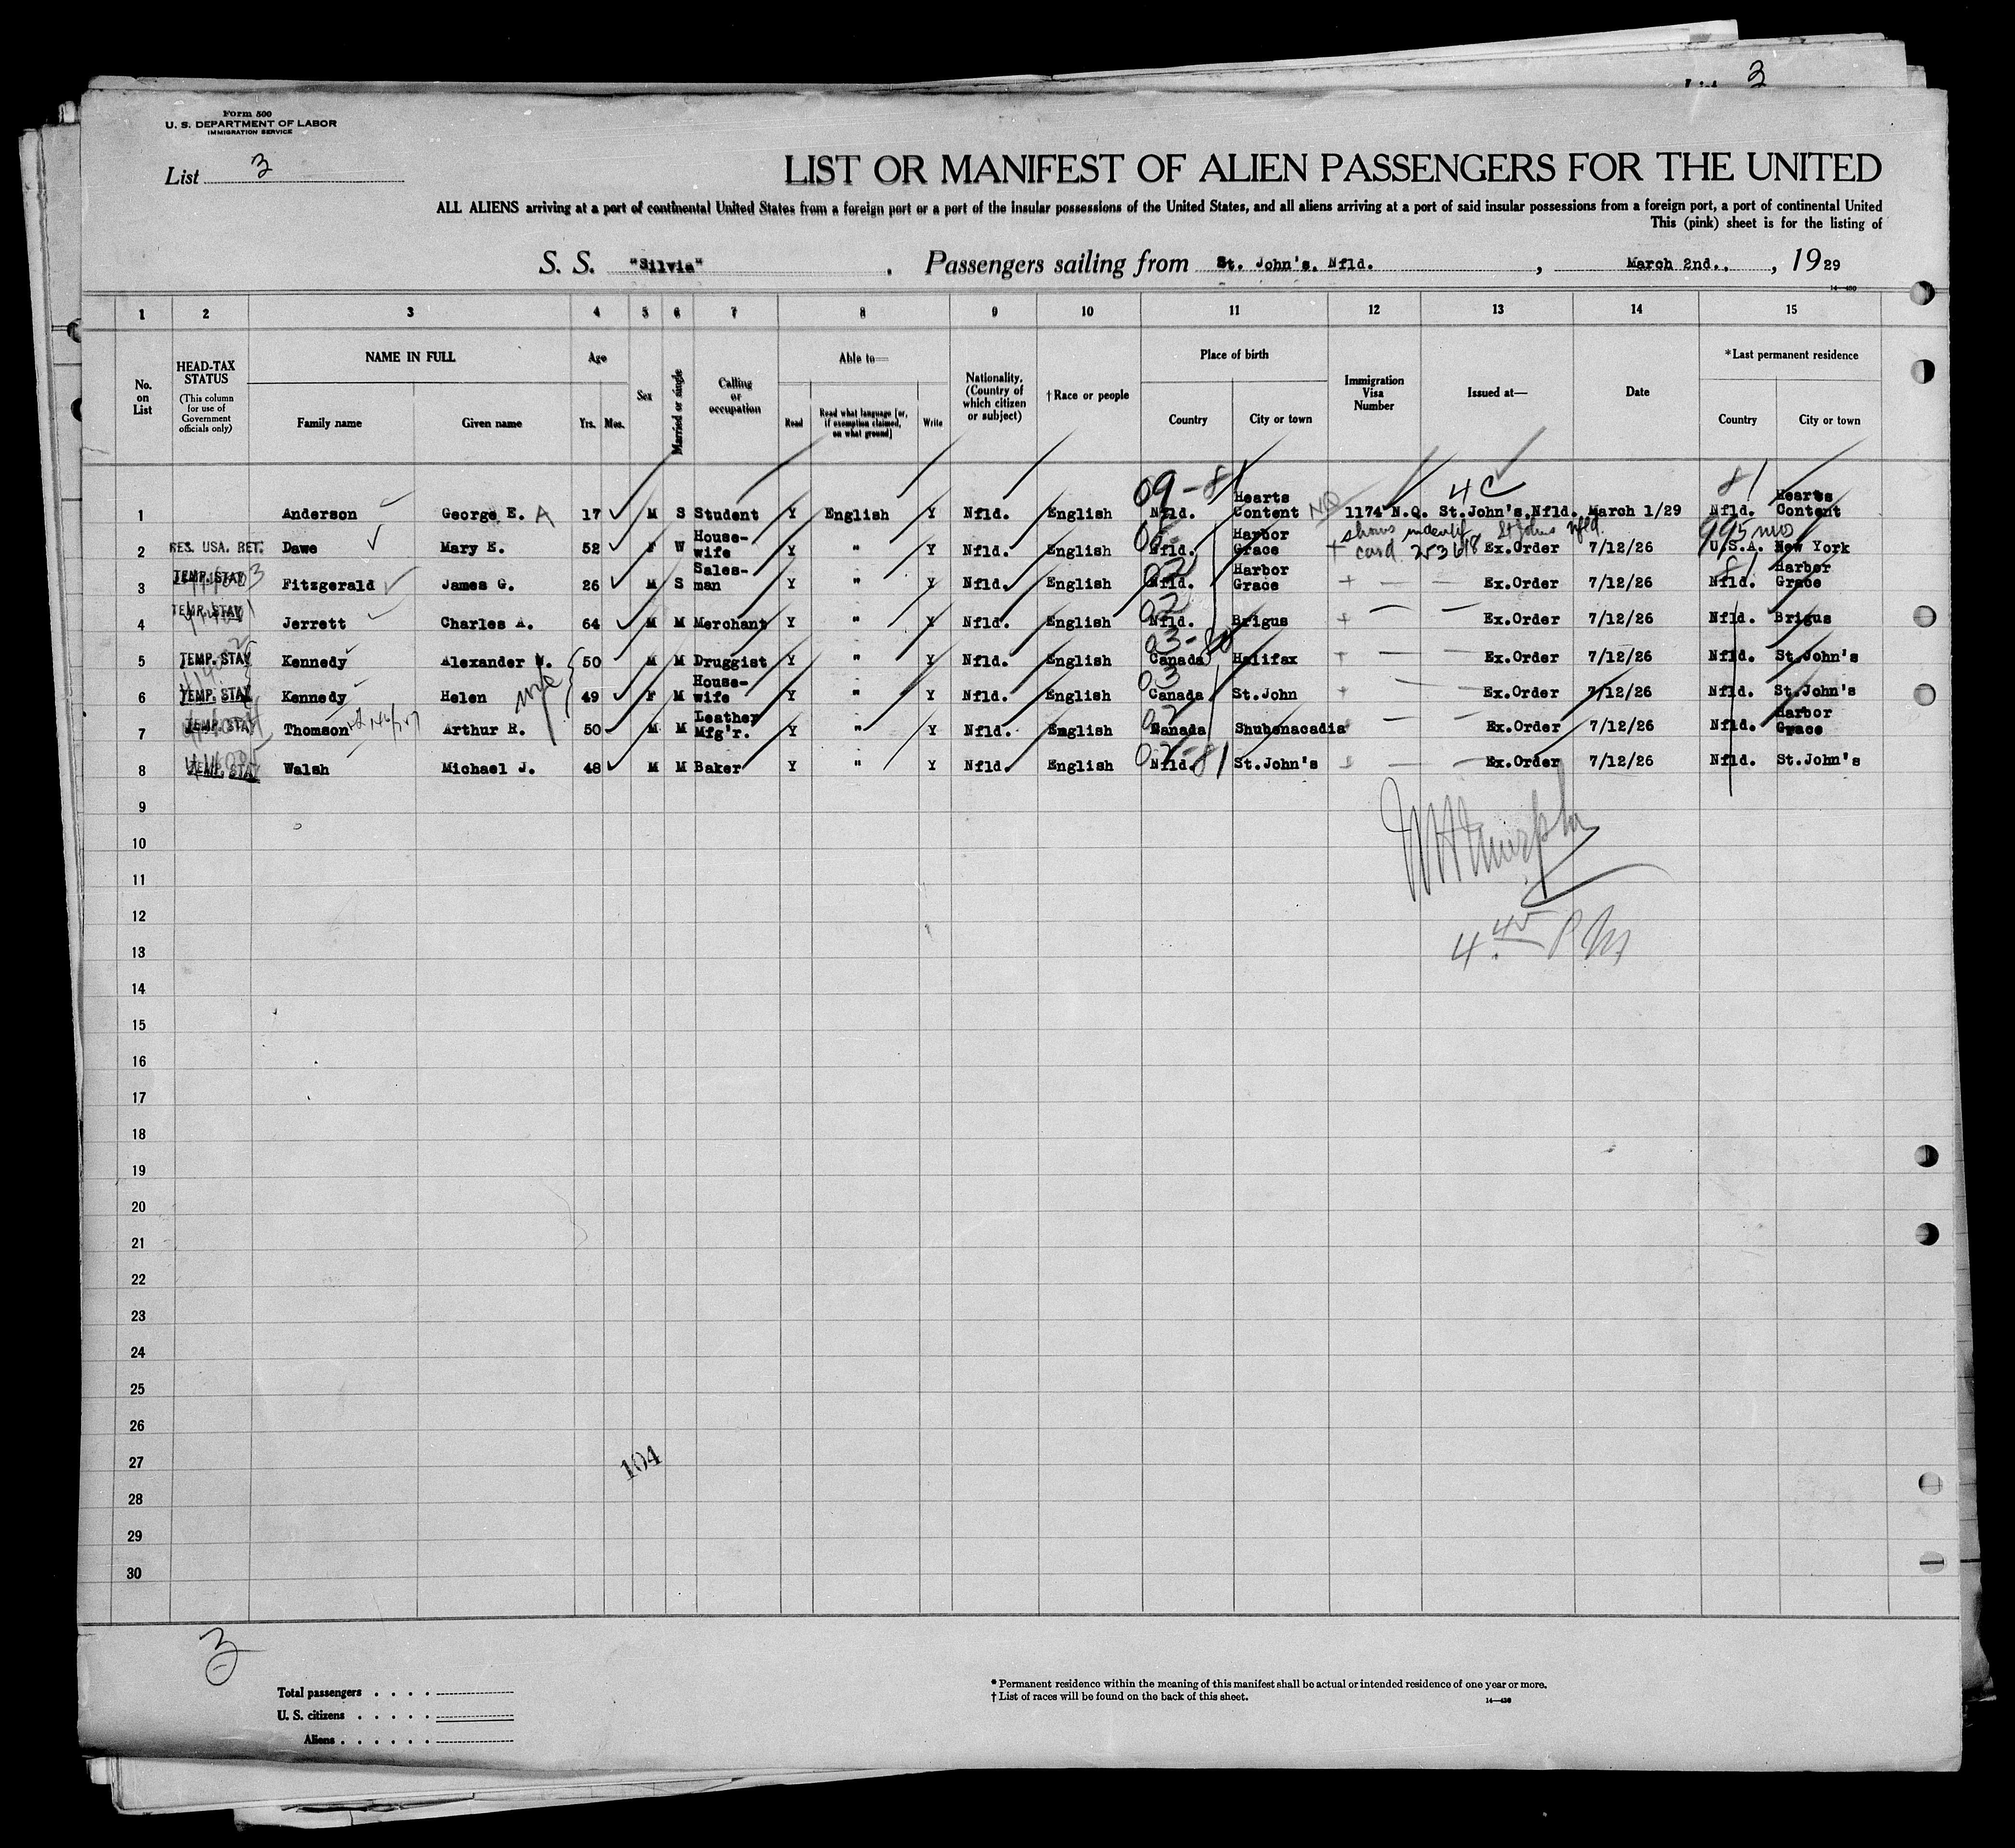 List 3
Form 500
U. S. DEPARTMENT OF LABOR
IMMIGRATION SERVICE
List 3
LIST OR MANIFEST OF ALIEN PASSENGERS FOR THE UNITED
ALL ALIENS arriving at a port of continental United States from a foreign port or a port of the insular possessions of the United States, and all aliens arriving at a port of said insular possessions from a foreign port, a port of continental United
This (pink) sheet is for the listing of
S. S. "Silvia", Passengers sailing from St. John's, Nfld., March 2nd., 1929
14—430
1 2 3 4 5 6 7 8 9 10 11 12 13 14 15
No. on List
HEAD-TAX STATUS (This column for use of Government officials only)
NAME IN FULL
Family name Given name
Age
Yrs. Mos.
Sex
Married or single
Calling or occupation
Able to—
Read Read what language [or, if exemption claimed, on what ground] Write
Nationality. (Country of which citizen or subject)
†Race or people
Place of birth
Country City or town
Immigration Visa Number
Issued at—
Date
*Last permanent residence
Country City or town
09-81 4C 81
1 Anderson George E. A 17 M S Student Y English Y Nfld. English Nfld. Hearts Content NQ 1174 N.Q. St.John's,Nfld. March 1/29 Nfld. Hearts Content
shows identif St Johns Nfld. 995 mo
2 RES. USA. RET. Dawe Mary E. 52 F W House-wife Y " Y Nfld. English Nfld. Harbor Grace card 253618 Ex.Order 7/12/26 U.S.A. New York
3 TEMP. STAY Fitzgerald James G. 26 M S Sales-man Y " Y Nfld. English 02 Nfld. Harbor Grace — — Ex.Order 7/12/26 81 Nfld. Harbor Grace
4 TEMP. STAY Jerrett Charles A. 64 M M Merchant Y " Y Nfld. English 02 Nfld. Brigus — — Ex.Order 7/12/26 Nfld. Brigus
5 TEMP. STAY Kennedy Alexander W. 50 M M Druggist Y " Y Nfld. English 03-80 Canada Halifax — — Ex.Order 7/12/26 Nfld. St.John's
6 TEMP. STAY Kennedy Helen wife 49 F M House-wife Y " Y Nfld. English 03 Canada St.John — — Ex.Order 7/12/26 Nfld. St.John's
7 TEMP. STAY Thomson Arthur R. 50 M M Leather Mfg'r. Y " Y Nfld. English 02 Canada Shubenacadia — — Ex.Order 7/12/26 Nfld. Harbor Grace
8 TEMP. STAY Walsh Michael J. 48 M M Baker Y " Y Nfld. English 02-81 Nfld. St.John's — — Ex.Order 7/12/26 Nfld. St.John's
9
10
11
12
4.45 PM
13
14
15
16
17
18
19
20
21
22
23
24
25
26
27
104
28
29
30
3
Total passengers
U. S. citizens
Aliens
* Permanent residence within the meaning of this manifest shall be actual or intended residence of one year or more.
† List of races will be found on the back of this sheet.
14—430